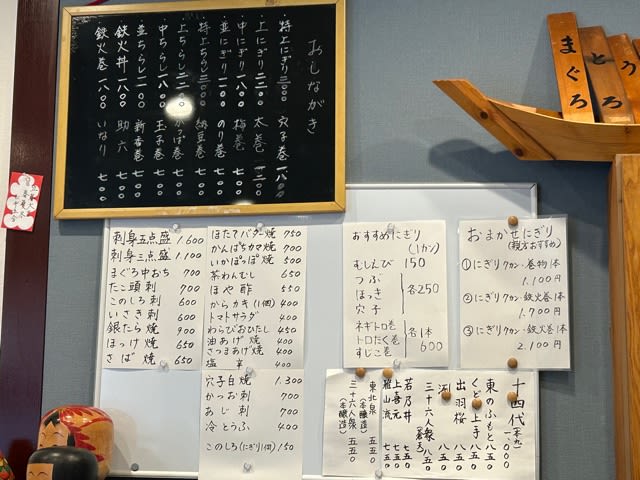 おしながき
・特上にぎり 三〇〇〇
・上にぎり 二二〇〇
・中にぎり 一八〇〇
・並にぎり 一一〇〇
・特上ちらし 三〇〇〇
・上ちらし
・中ちらし 一八〇〇
・並ちらし 一一〇〇
・鉄火丼 一八〇〇
・鉄火巻 一八〇〇
穴子巻 一八〇〇
太巻 一二〇〇
梅巻 七〇〇
のり巻 七〇〇
納豆巻 七〇〇
かっぱ巻 七〇〇
玉子巻 七〇〇
新香巻 七〇〇
助六 七〇〇
いなり 七〇〇
まぐろ
とろ
刺身五点盛 1.600
刺身三点盛 1.100
まぐろ中おち 700
たこ頭刺 700
このしろ刺 600
いさき刺 600
銀たら焼 900
ほっけ焼 650
さば焼 650
ほたてバター焼 750
かんぱちカマ焼 700
いかぽっぽ焼 500
茶わんむし 650
ほや酢 550
からカキ(1個) 400
トマトサラダ 400
わらびおひたし 450
油あげ焼 400
さつまあげ焼 400
塩辛 400
穴子白焼 1.300
かつお刺 700
あじ刺 700
冷とうふ 400
このしろ(にぎり1個) 150
おすすめにぎり
(1カン)
むしえび 150
つぶ
ほっき
穴子
各250
ネギトロ巻
トロたく巻
すじこ巻
各1本
600
おまかせにぎり
(親方おすすめ)
①にぎり7カン・巻物1本
1.100円
②にぎり7カン・鉄火巻1本
1.700円
③にぎり9カン・鉄火巻1本
2.100円
十四代
一、〇〇〇
東のふもと 八五〇
くどき上手 八五〇
出羽桜 八五〇
八五〇
三十六人衆 八五〇
若乃井 七五〇
上喜元 七五〇
雅山流 七五〇
東北泉 五五〇
(本醸造)
三十六人衆 五五〇
(本醸造)